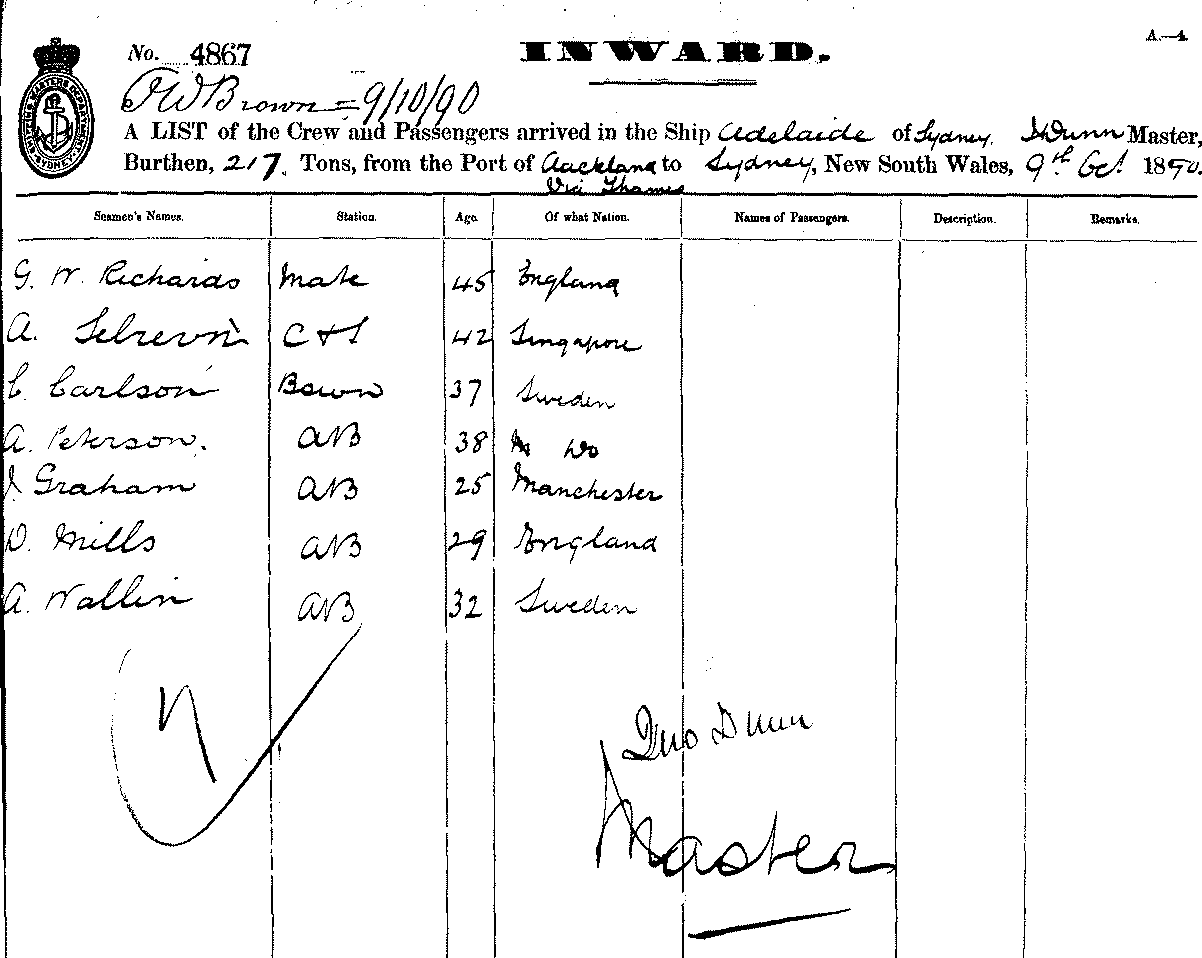 A.—4.
No. 4867
INWARD.
Brown = 9/10/90
A LIST of the Crew and Passengers arrived in the Ship Adelaide of Sydney, Dunn Master,
Burthen, 217. Tons, from the Port of Auckland to Sydney, New South Wales, 9th Oct 1890.
Via Thames
Seamen's Names. Station. Age. Of what Nation. Names of Passengers. Description. Remarks.
G. W. Richards Mate 45 England
A. C & S 42 Singapore
C. Carlson Bswn 37 Sweden
A. Peterson. AB 38 Do
J Graham AB 25 Manchester
D. Mills AB 29 England
A. Wallin AB 32 Sweden
Jno Dunn
Master